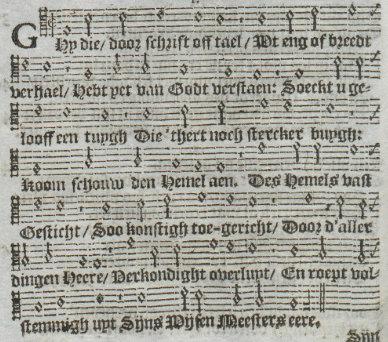 GHy die/ door schrift off tael/ Wt eng of breedt
verhael/ Hebt yet van Godt verstaen: Soeckt u ge-
looff een tuygh Die 'thert noch stercker buygh:
Koom schouw den Hemel aen. Des Hemels vast
Gesticht/ Soo konstigh toe-gericht/ Door d'aller
dingen Heere/ Verkondight overluyt/ En roept vol-
stemmigh uyt Sijns Wijsen Meesters eere.
Sijn